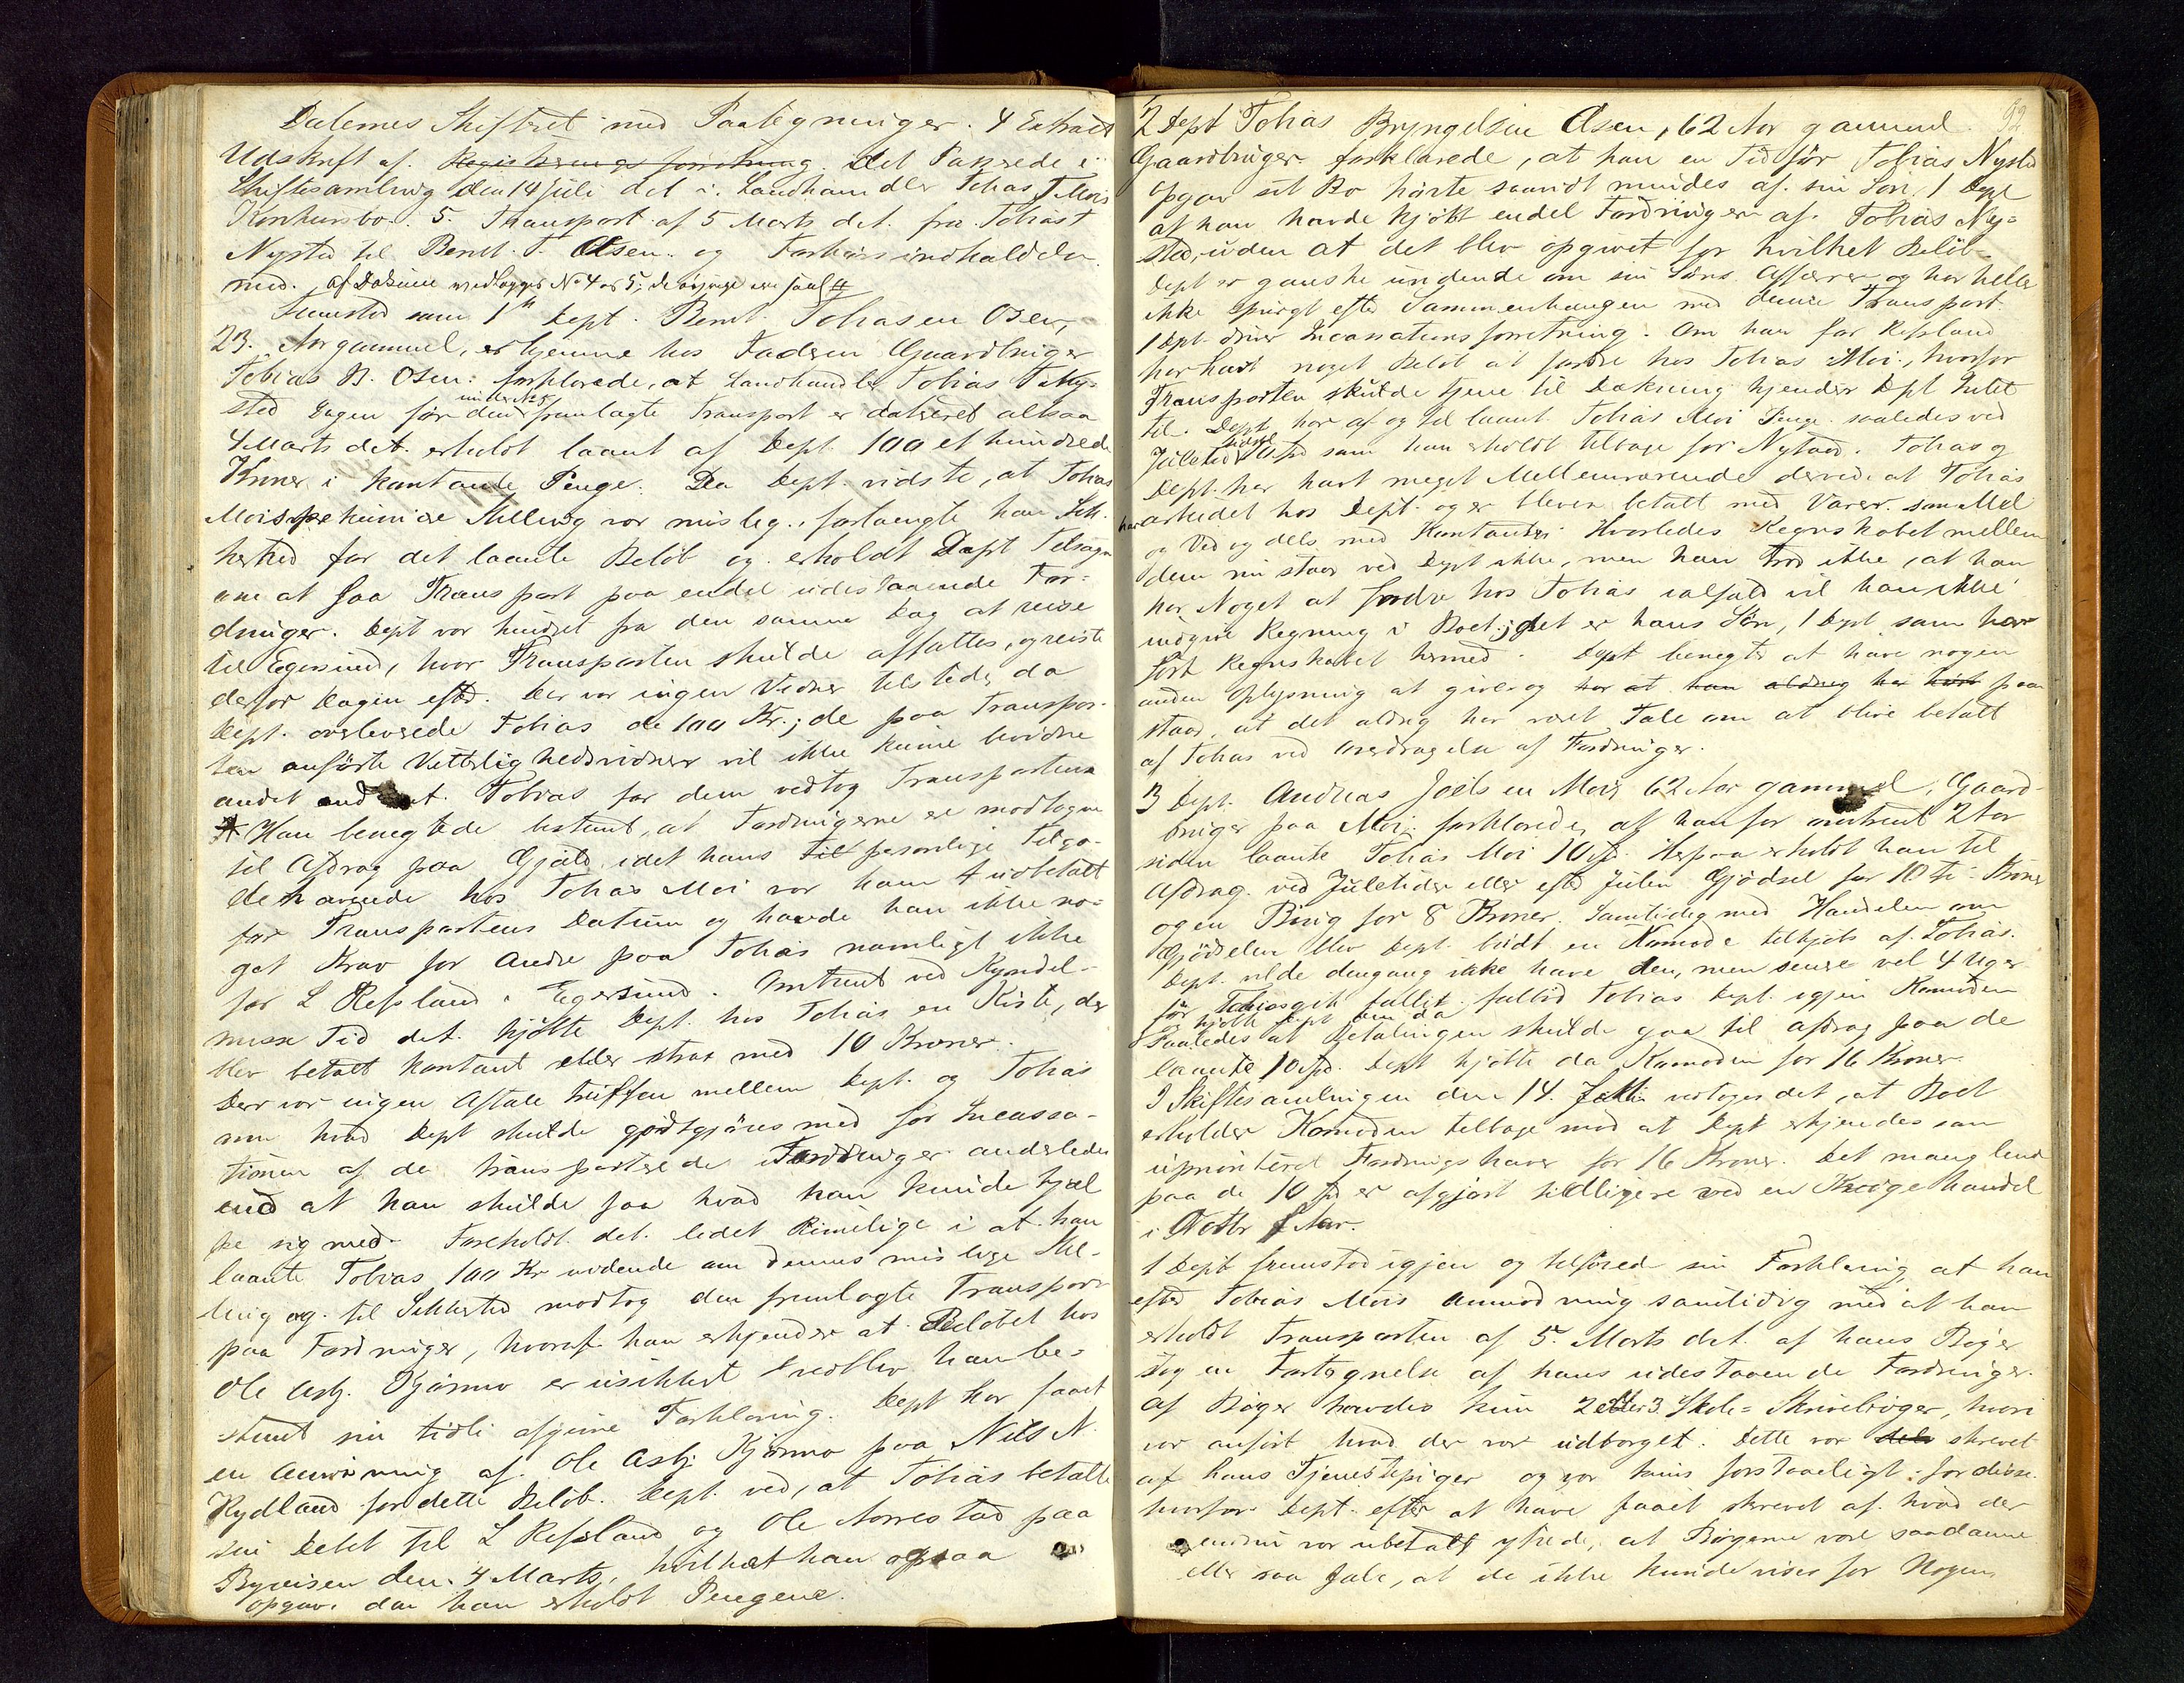 Dalernes Skifteret med Paategninger. 4 Extract
Udskrift af Registreringsforretning det Passerede i
Skiftesamling den 14 Juli det i Landhandler Tobias T. Mois
Konkursbo. 5. Transport af 5 Marts det. fra Tobias T
Nysted til Bernt T. Osen. og Forhørs indholdelse
med. af Dokum vedlægges No 4 og 5, de øvrige ere
Fremstod som 1ste Dept. Bernt Tobiasen Osen,
23 Aar gammel, er hjemme hos Faderen Gaardbruger
Tobias B. Osen: forklarede, at Landhandler Tobias T. Ny-
sted Dagen før den under No 5 fremlagte Transport er dateret altsaa
4 Marts det. erholdt laant af Dept. 100 et hundrede
Kroner i kontante Penge. Da Dept. vidste, at Tobias
Mois økonomiske Stilling var mislig, forlangte han Sik-
kerhed for det laante Beløb og erholdt Dept Tilsagn
om at faa Transport paa endel udestaaende For-
dringer. Dept var hindret fra den samme Dag at reise
til Egersund, hvor Transporten skulde affattes, og reiste
derfor Dagen efter. Der var ingen Vidner tilstede, da
Dept. overleverede Tobias de 100 Kr.; de paa Transpor-
ten anførte Vitterlighedsvidner vil ikke kunne bevidne
andet end at Tobias for dem vedtog Transporten
Han benegtede bestemt, at Fordringerne er modtagne
til Afdrag paa Gjæld, idet hans til personlige Tilgo-
dehavende hos Tobias Moi var ham udbetalt
før Transportens Datum og havde han ikke no-
get Krav for Andre paa Tobias navnligt ikke
for L Refsland i Egersund. Omtrent ved Kyndel-
messe Tid det. kjøbte Dept. hos Tobias en Kiste, der
blev betalt kontant eller strax med 10 Kroner.
Der var ingen Aftale truffen mellem Dept. og Tobias
om hvad Dept skulde godtgjøres med for Incassa-
tionen af de transporterede Fordringer anderledes
end at han skulde faa hvad han kunde hjæl-
pe sig med. Foreholdt det lidet Rimelige i at han
laante Tobias 100 Kr vidende om dennes mislige Stil-
ling og til Sikkerhed modtog den fremlagte Transport
paa Fordringer, hvoraf han erkjender at Beløbet hos
Ole Asbj. Kjørmo er usikkert vedblev han be-
stemt sin tidli afgivne Forklaring. Dept har faaet
en Anvisning af Ole Asbj Kjørmo paa Nils N.
Rydland for dette Beløb. Dept. ved, at Tobias betalte
sin Debet til L Refsland og Ole Aarrestad paa
Byreisen den 4 Marts, hvilket han ogsaa
opgav, da han erholdt Pengene.
92
2 Dept Tobias Bryngelsen Osen, 62 Aar gammel
Gaardbruger forklarede, at han en Tid før Tobias Nysted
opgav sit Bo hørte saavidt mindes af sin Søn, 1 Dept
at han havde kjøbt endel Fordringer af Tobias Ny-
sted, uden at det blev opgivet for hvilket Beløb.
Dept er ganske uvidende om sin Søns Affærer og har heller
ikke spurgt efter Sammenhængen med denne Transport.
1 Dept. driver Incassationsforretning. Om han for Refsland
har havt noget Beløb at fordre hos Tobias Moi, hvorfor
Transporten skulde tjene til Dækning kjender Dept Intet
til. Dept har af og til laant Tobias Moi Penge saaledes ved
Juletid som han erholdt tilbage før Nytaar. Tobias og
Dept. har havt meget Mellemværende derved at Tobias
har arbeidet hos Dept. og er bleven betalt med Varer som Mel
og Ved og dels med Kontanter. Hvorledes Regnskabet mellem
dem nu staar ved Dept ikke, men han tror ikke, at han
har Noget at fordre hos Tobias ialfald vil han ikke
indgive Regning i Boet; det er hans Søn, 1 Dept som har
ført Regnskabet hermed. Dept benegter at have nogen
anden Oplysning at give og har at han aldrig har hørt paa-
staar, at det aldrig har været Tale om at blive betalt
af Tobias ved Overdragelse af Fordringer.
3 Dept. Andreas Joelsen Moi, 62 Aar gammel, Gaard-
bruger paa Moi forklarede, at han for omtrent 2 Aar
siden laante Tobias Moi 10 Spd. Herpaa erholdt han til
Afdrag ved Juletider eller efter Julen Gjødsel for 10 ti Kroner
og en Bing for 8 Kroner. Samtidig med Handelen om
Gjødselen blev Dept. budt en Komode tilkjøbs af Tobias.
Dept. vilde dengang ikke have den, men senere vel 4 Uger
før Tobias gik fallit falbød Tobias Dept. igjen Komoden
kjøbte Dept den da
Saaledes at Betalingen skulde gaa til Afdrag paa de
laante 10 Spd. Dept kjøbte da Komoden for 16 Kroner.
I Skiftesamlingen den 14. Juli vedtoges det, at Boet
erholder Komoden tilbage mod at Dept erkjendes som
uprioriteret Fordringshaver for 16 Kroner. Det manglende
paa de 10 Spd er afgjort tidligere ved en Kreaturhandel
i Octbr f Aar.
1 Dept fremstod igjen og tilføied sin Forklaring, at han
efter Tobias Mois Anmodning samtidig med at han
erholdt Transporten af 5. Marts det. af hans Bøger
tog en Fortegnelse af hans udestaaende Fordringer.
Af Bøger havdes kun 2 eller 3 Skole-Skrivebøger, hvori
var anført hvad der var udborget. Dette var dels skrevet
af hans Tjenestepiger og var kuns forstaaeligt for disse
hvorfor Dept. efter at have faaet skrevet af hvad der
endnu var ubetalt ytrede, at Bøgerne vare saadanne
eller saa gale, at de ikke kunde vises for Nogen,